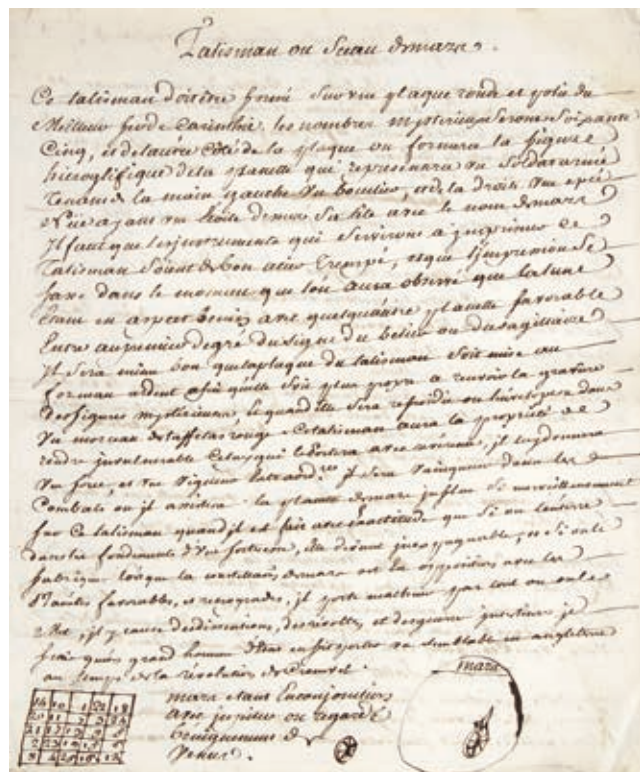 Talisman ou Sceau de mars.
Ce talisman doit être formé sur une plaque ronde et polie du
Meilleur fer de Carinthie. les nombres mysterieux seront soixante
Cinq, et de lautre côté de la plaque on formera la figure
hieroglifique de la planette qui representera un Soldat armé
tenant de la main gauche un bouclier, et de la droite une epée
Nüe ayant une Etoile dessus Sa tête avec le nom de mars
Il faut que les instruments qui Serviront a imprimer ce
Talisman Soient de bon acier trempé, et que l'impression Se
fasse dans le moment que lon aura observé que la lune
Etant en aspect benin avec quelquautre planette favorable
Entre au premier degré du Signe du belier ou du Sagittaire
Il Sera même bon que la plaque du talisman Soit mise au
feu ardent afin quelle Soit plus propre a recevoir la gravure
des figures mysterieuses Et quand elle Sera refroidie on lenvelopera dans
Un morceau de taffetas rouge. Ce talisman aura la propriété de
rendre invulnerable Celuy qui le portera avec reverence, il luy donnera
Une force, et une vigueur Extraordres Il Sera vainqueur dans les
Combats où il assistera. la planette de mars influe Si merveilleusement
Sur Ce talisman quand il est fait avec exactitude que Si on lenterre
dans les fondements d'une forteresse, Elle devient inexpugnable, et Si on le
fabrique lorsque la constellation de mars est En opposition avec les
Planetes favorables, et retrogrades, il porte malheur par tout ou on le
Met, il y cause des dissentions, des revoltes, et des guerres intestines je
Scais quun grand homme d'Etat en fit porter un Semblable en angleterre
au temps de la révolution de Cromvel.
mars
mars etant En conjonction
avec jupiter ou regardé
benignement de
Venus.